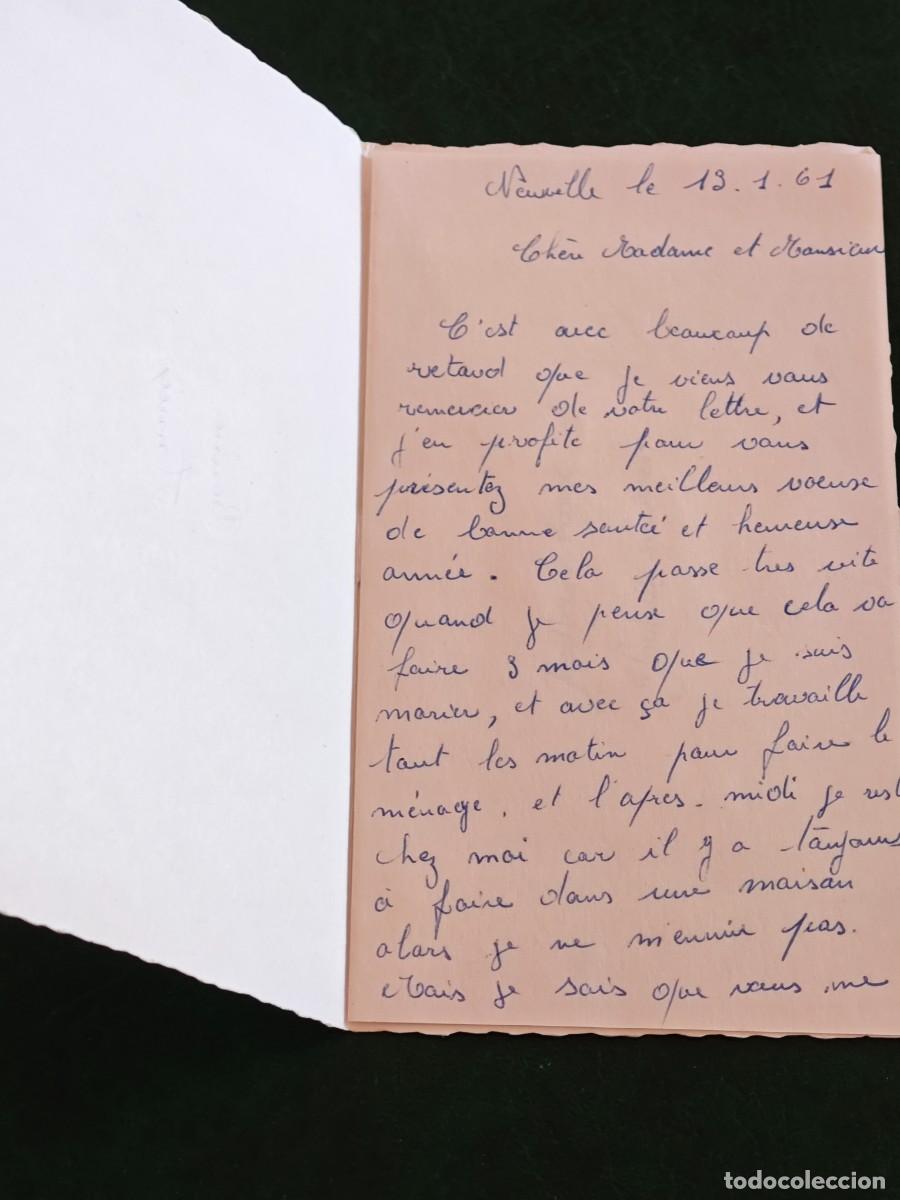 Neuville le 13.1.61
Chère Madame et Monsieur
C'est avec beaucoup de
retard que je viens vous
remercier de votre lettre, et
j'en profite pour vous
présentez mes meilleurs voeuse
de bonne santé et heureuse
année. Cela passe tres vite
quand je pense que cela va
faire 3 mois que je suis
marier, et avec ça je travaille
tout les matin pour faire le
ménage, et l'apres-midi je rest
chez moi car il y a toujours
à faire dans une maison
alors je ne m'ennuie pas.
Mais je sais que vous me
todocoleccion